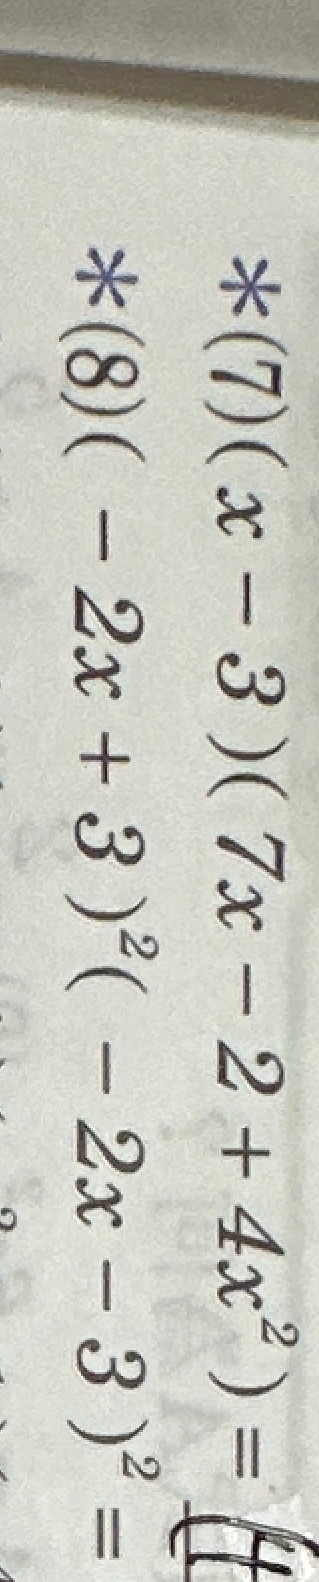 *(7)(x - 3)(7x - 2 + 4x²) =
*(8)(- 2x + 3)²(- 2x - 3)² =